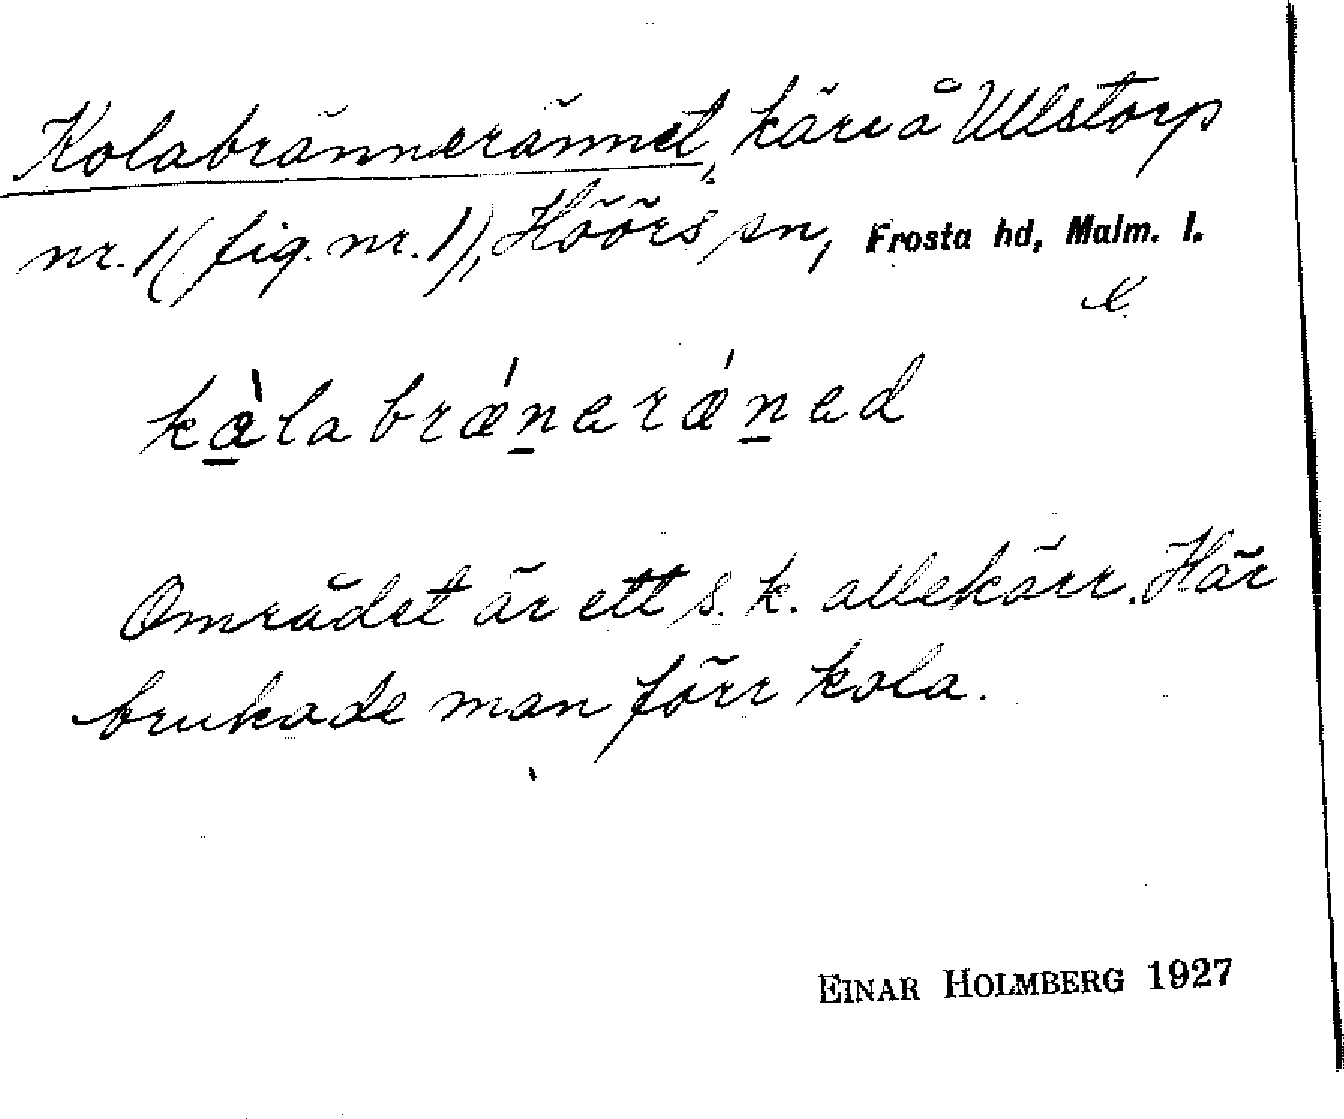 Kolabrännerännet, kärr å Ullstorp
nr. 1 (fig. nr. 1), Höörs sn, Frosta hd, Malm. l.
kàlabrǽnerǽned
Området är ett s. k. allekärr. Här
brukade man förr kola.
EINAR HOLMBERG 1927